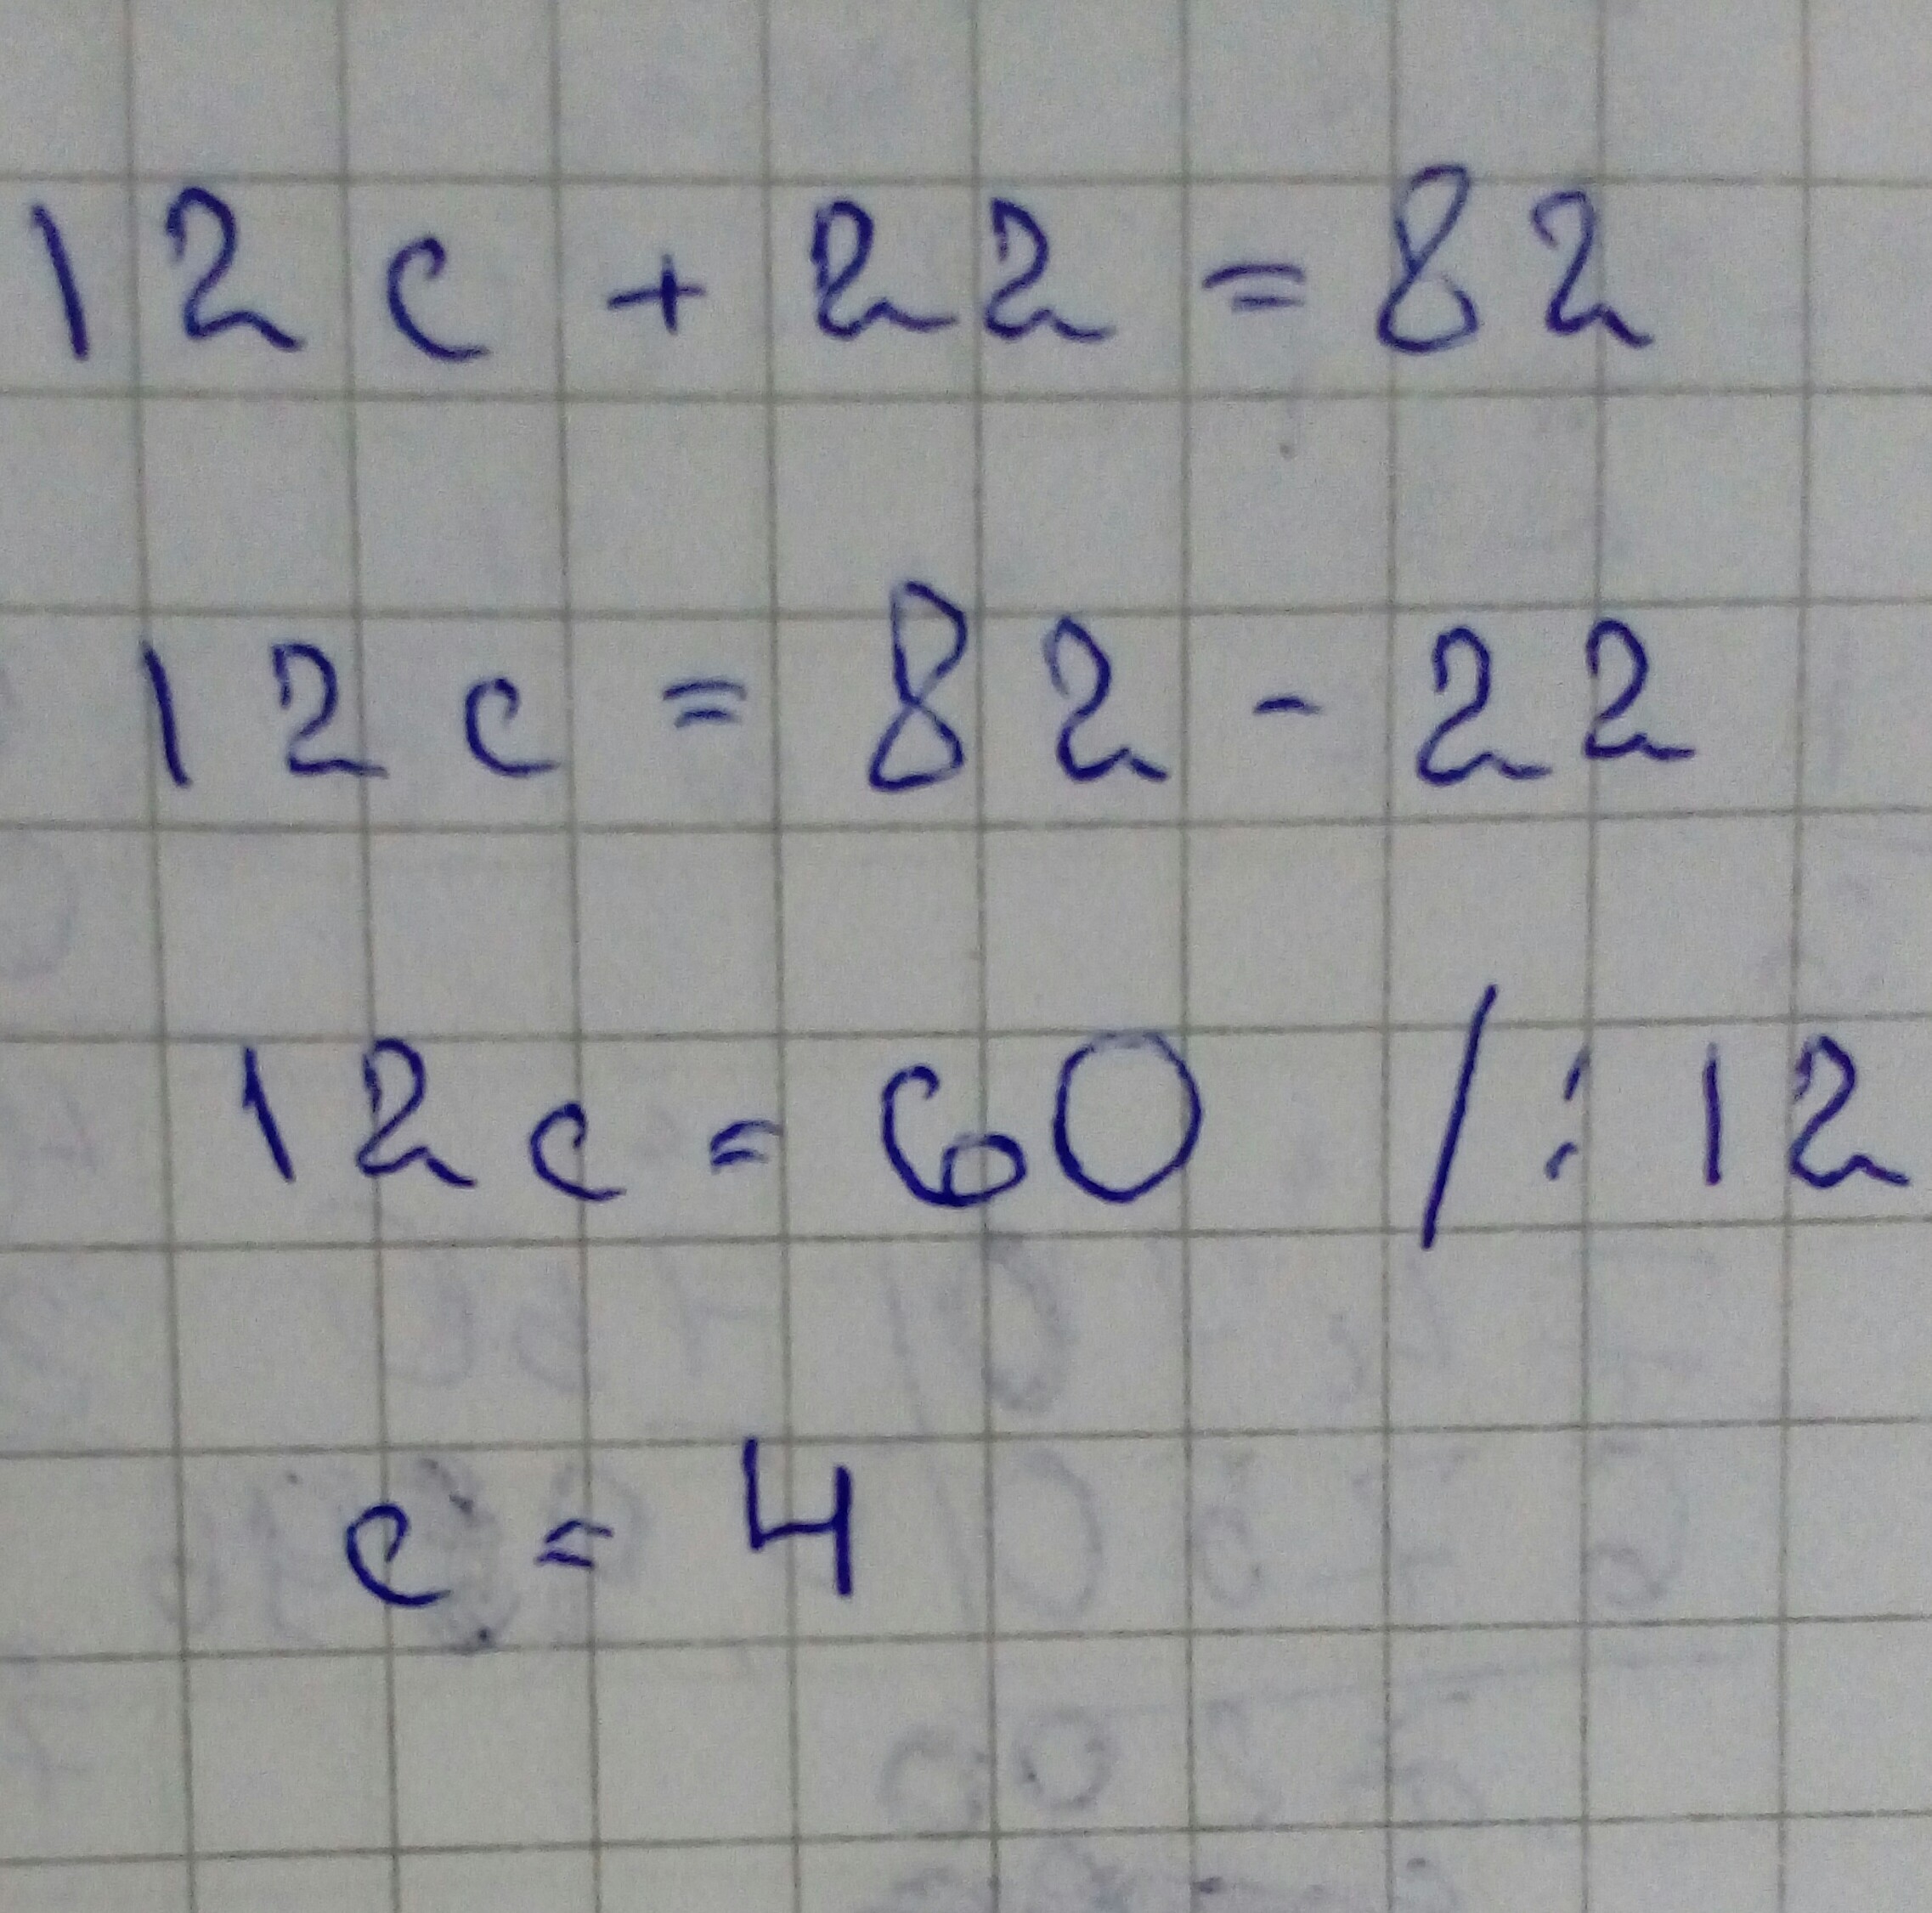 12c + 22 = 82
12c = 82 - 22
12c = 60 /: 12
c = 4